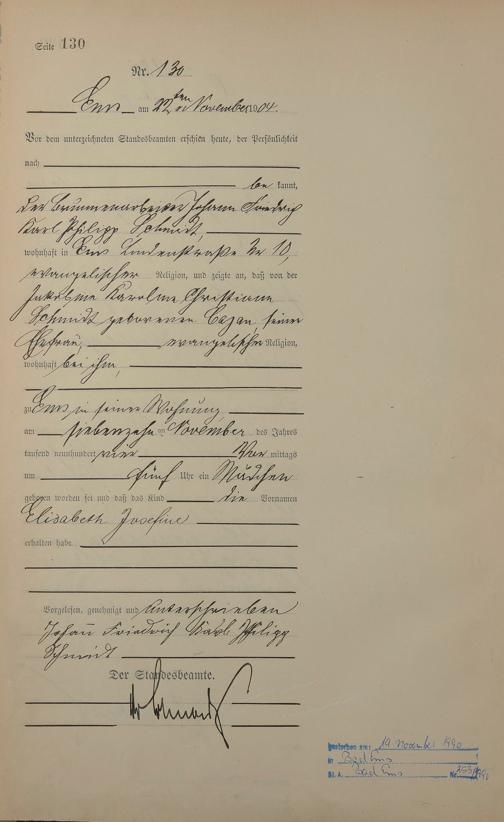 Seite 130
Nr. 130
Ems am 22ten November 1904.
Vor dem unterzeichneten Standesbeamten erschien heute, der Persönlichkeit
nach
be kannt,
der Brunnenarbeiter Johann Friedrich
Karl Philipp Schmidt,
wohnhaft in Ems Lindenstraße Nr 10,
evangelischer Religion, und zeigte an, daß von der
Jakobine Karoline Christiane
Schmidt geborenen Cazan, seiner
Ehefrau, evangelischer Religion,
wohnhaft bei ihm,
zu Ems in seiner Wohnung,
am siebenzehn ten November des Jahres
tausend neunhundert vier Vor mittags
um fünf Uhr ein Mädchen
geboren worden sei und daß das Kind die Vornamen
Elisabeth Josefine
erhalten habe.
Vorgelesen, genehmigt und unterschrieben
Johann Friedrich Karl Philipp
Schmidt
Der Standesbeamte.
gestorben am: 19 November 1990
in Bad Ems
St. A. Bad Ems Nr.